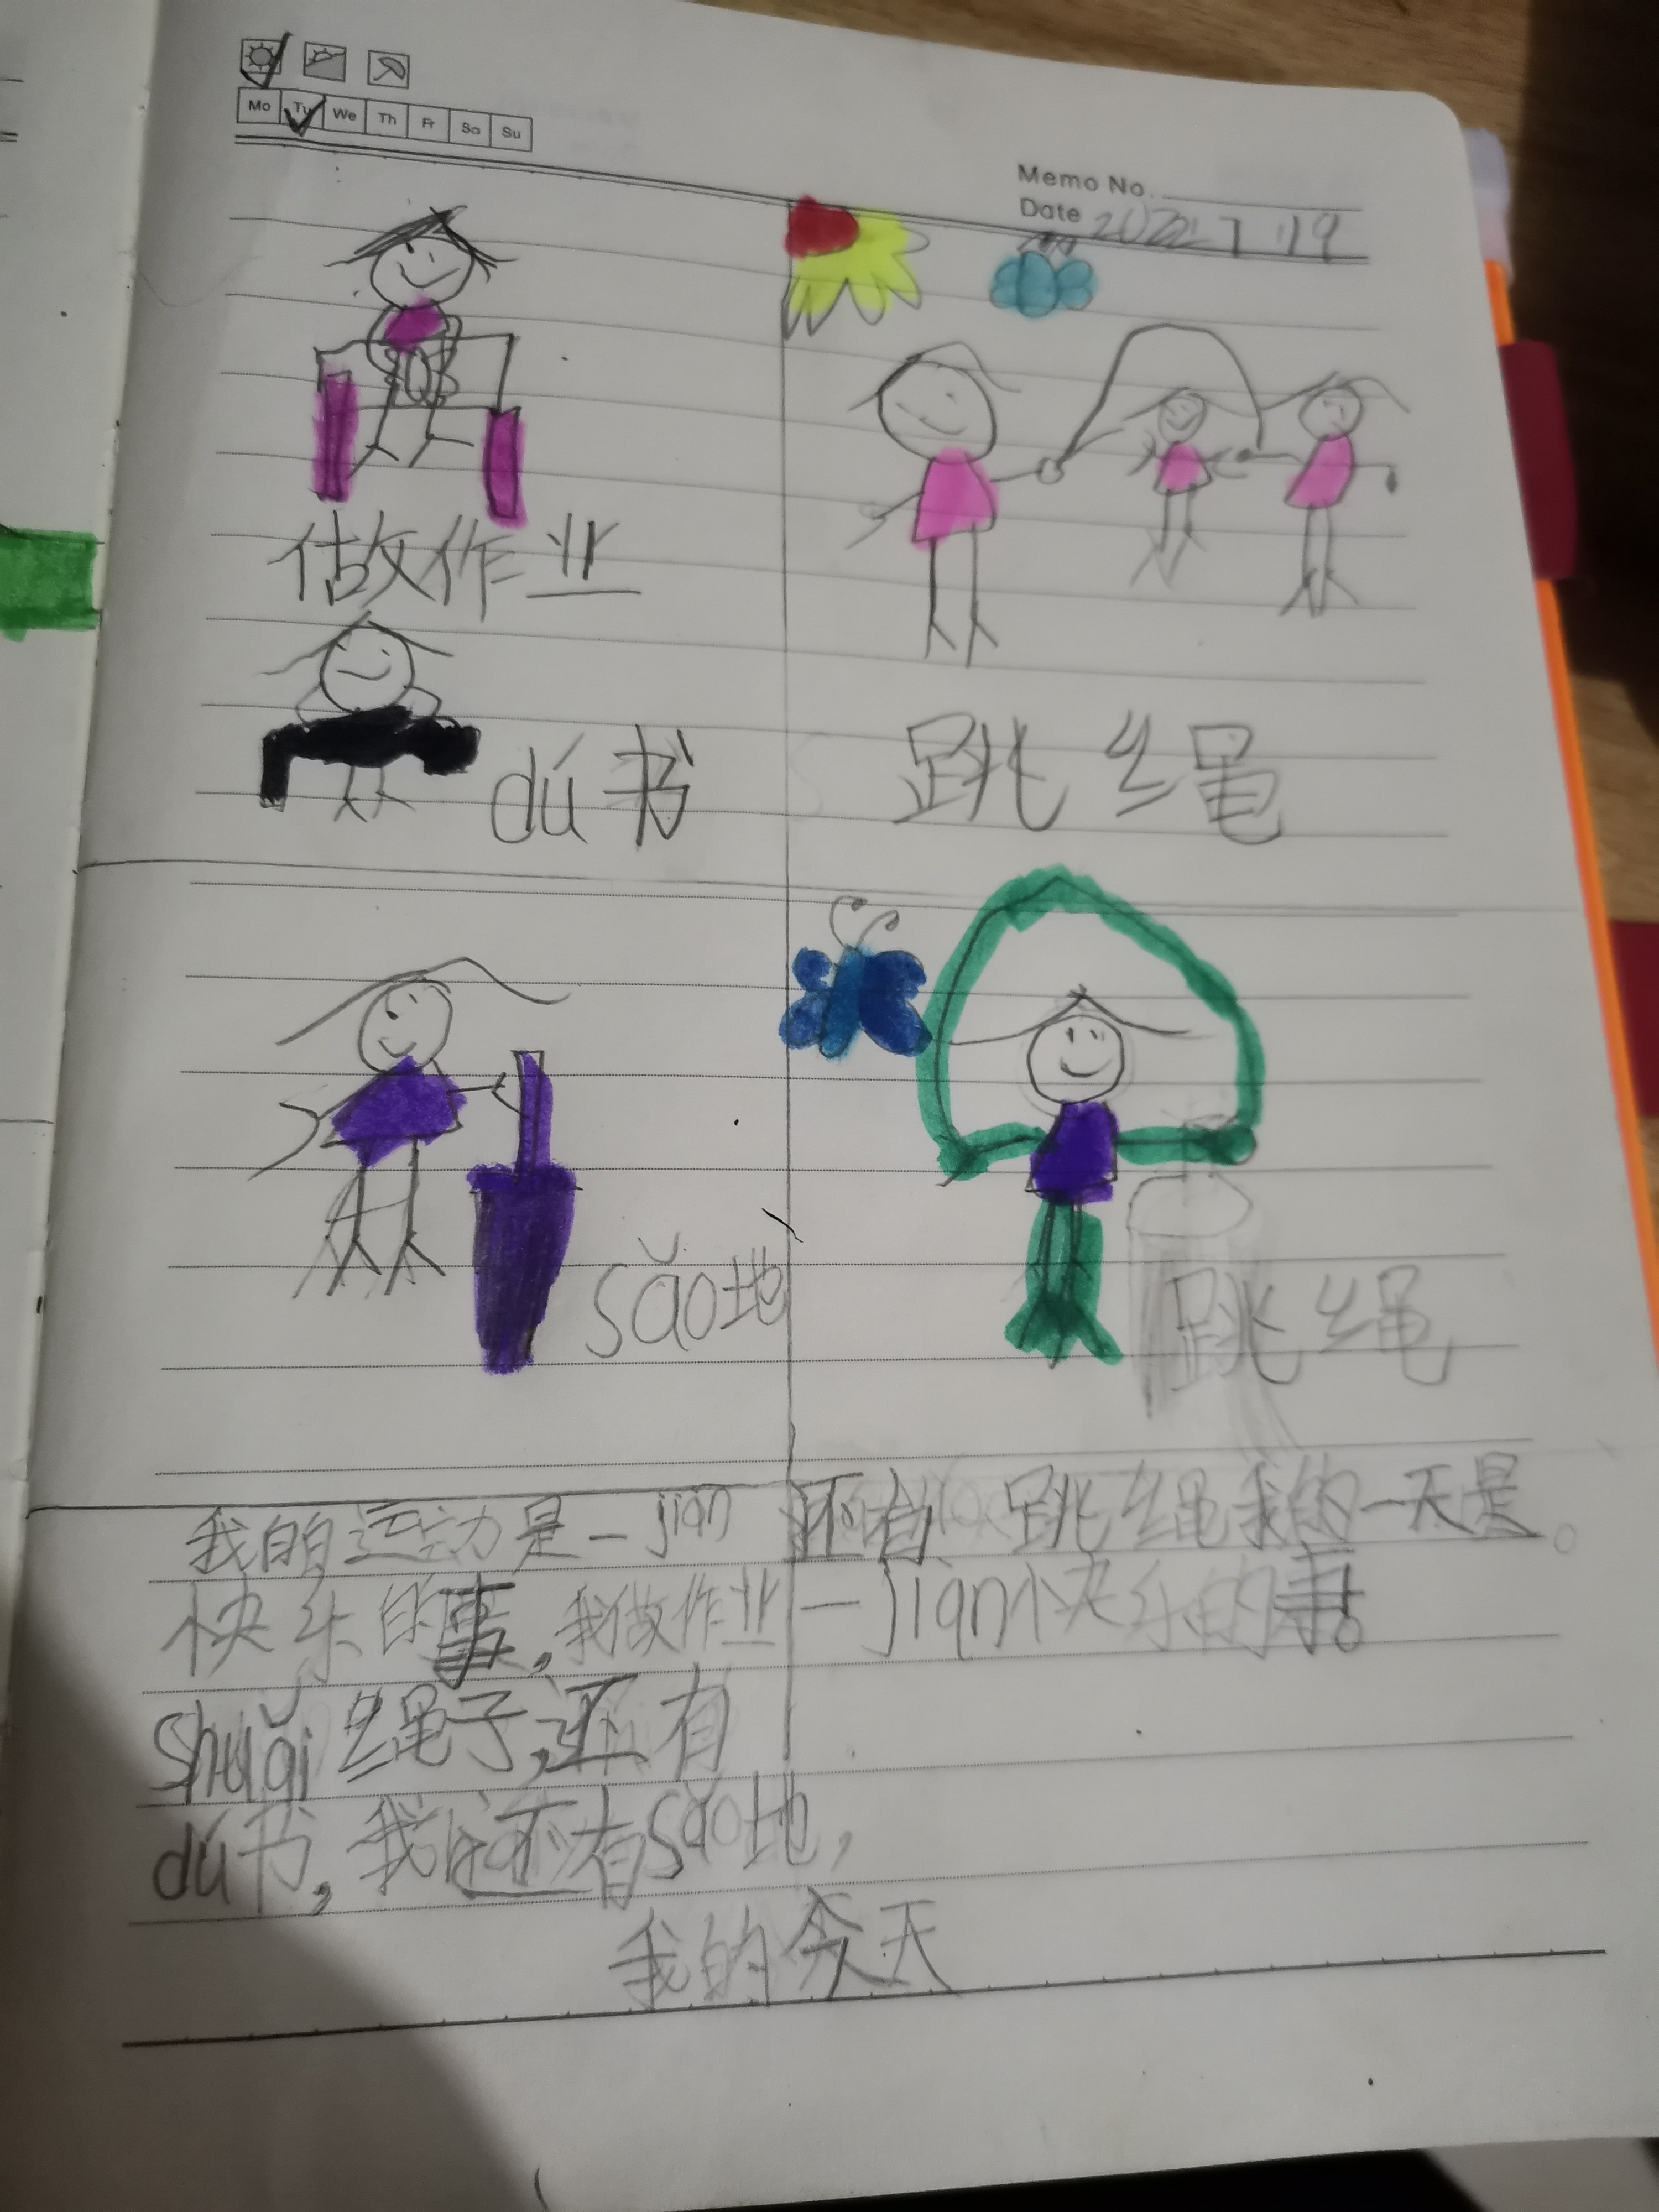 Mo Tu We Th Fr Sa Su
Memo No.
Date 2022 7 19
做作业
dú书
跳绳
sǎo地
跳绳
我的运动是一jiàn 还有 跳绳我的一天是。
快乐的事,我做作业一jiàn快乐的事。
shuǎi绳子,还有
dú书,我还有sǎo地,
我的今天